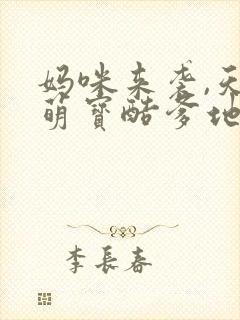 妈咪来袭,天
萌宝酷爹地
李长春